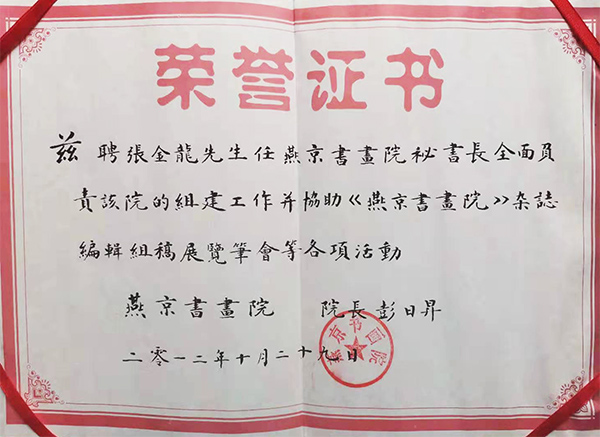 荣誉证书
兹聘張金龍先生任燕京書畫院秘書長全面負
責該院的組建工作并協助《燕京書畫院》杂誌
編輯組稿展覽筆會等各项活動
燕京書畫院 院長彭日昇
二零一二年十月二十九日
燕京书画院